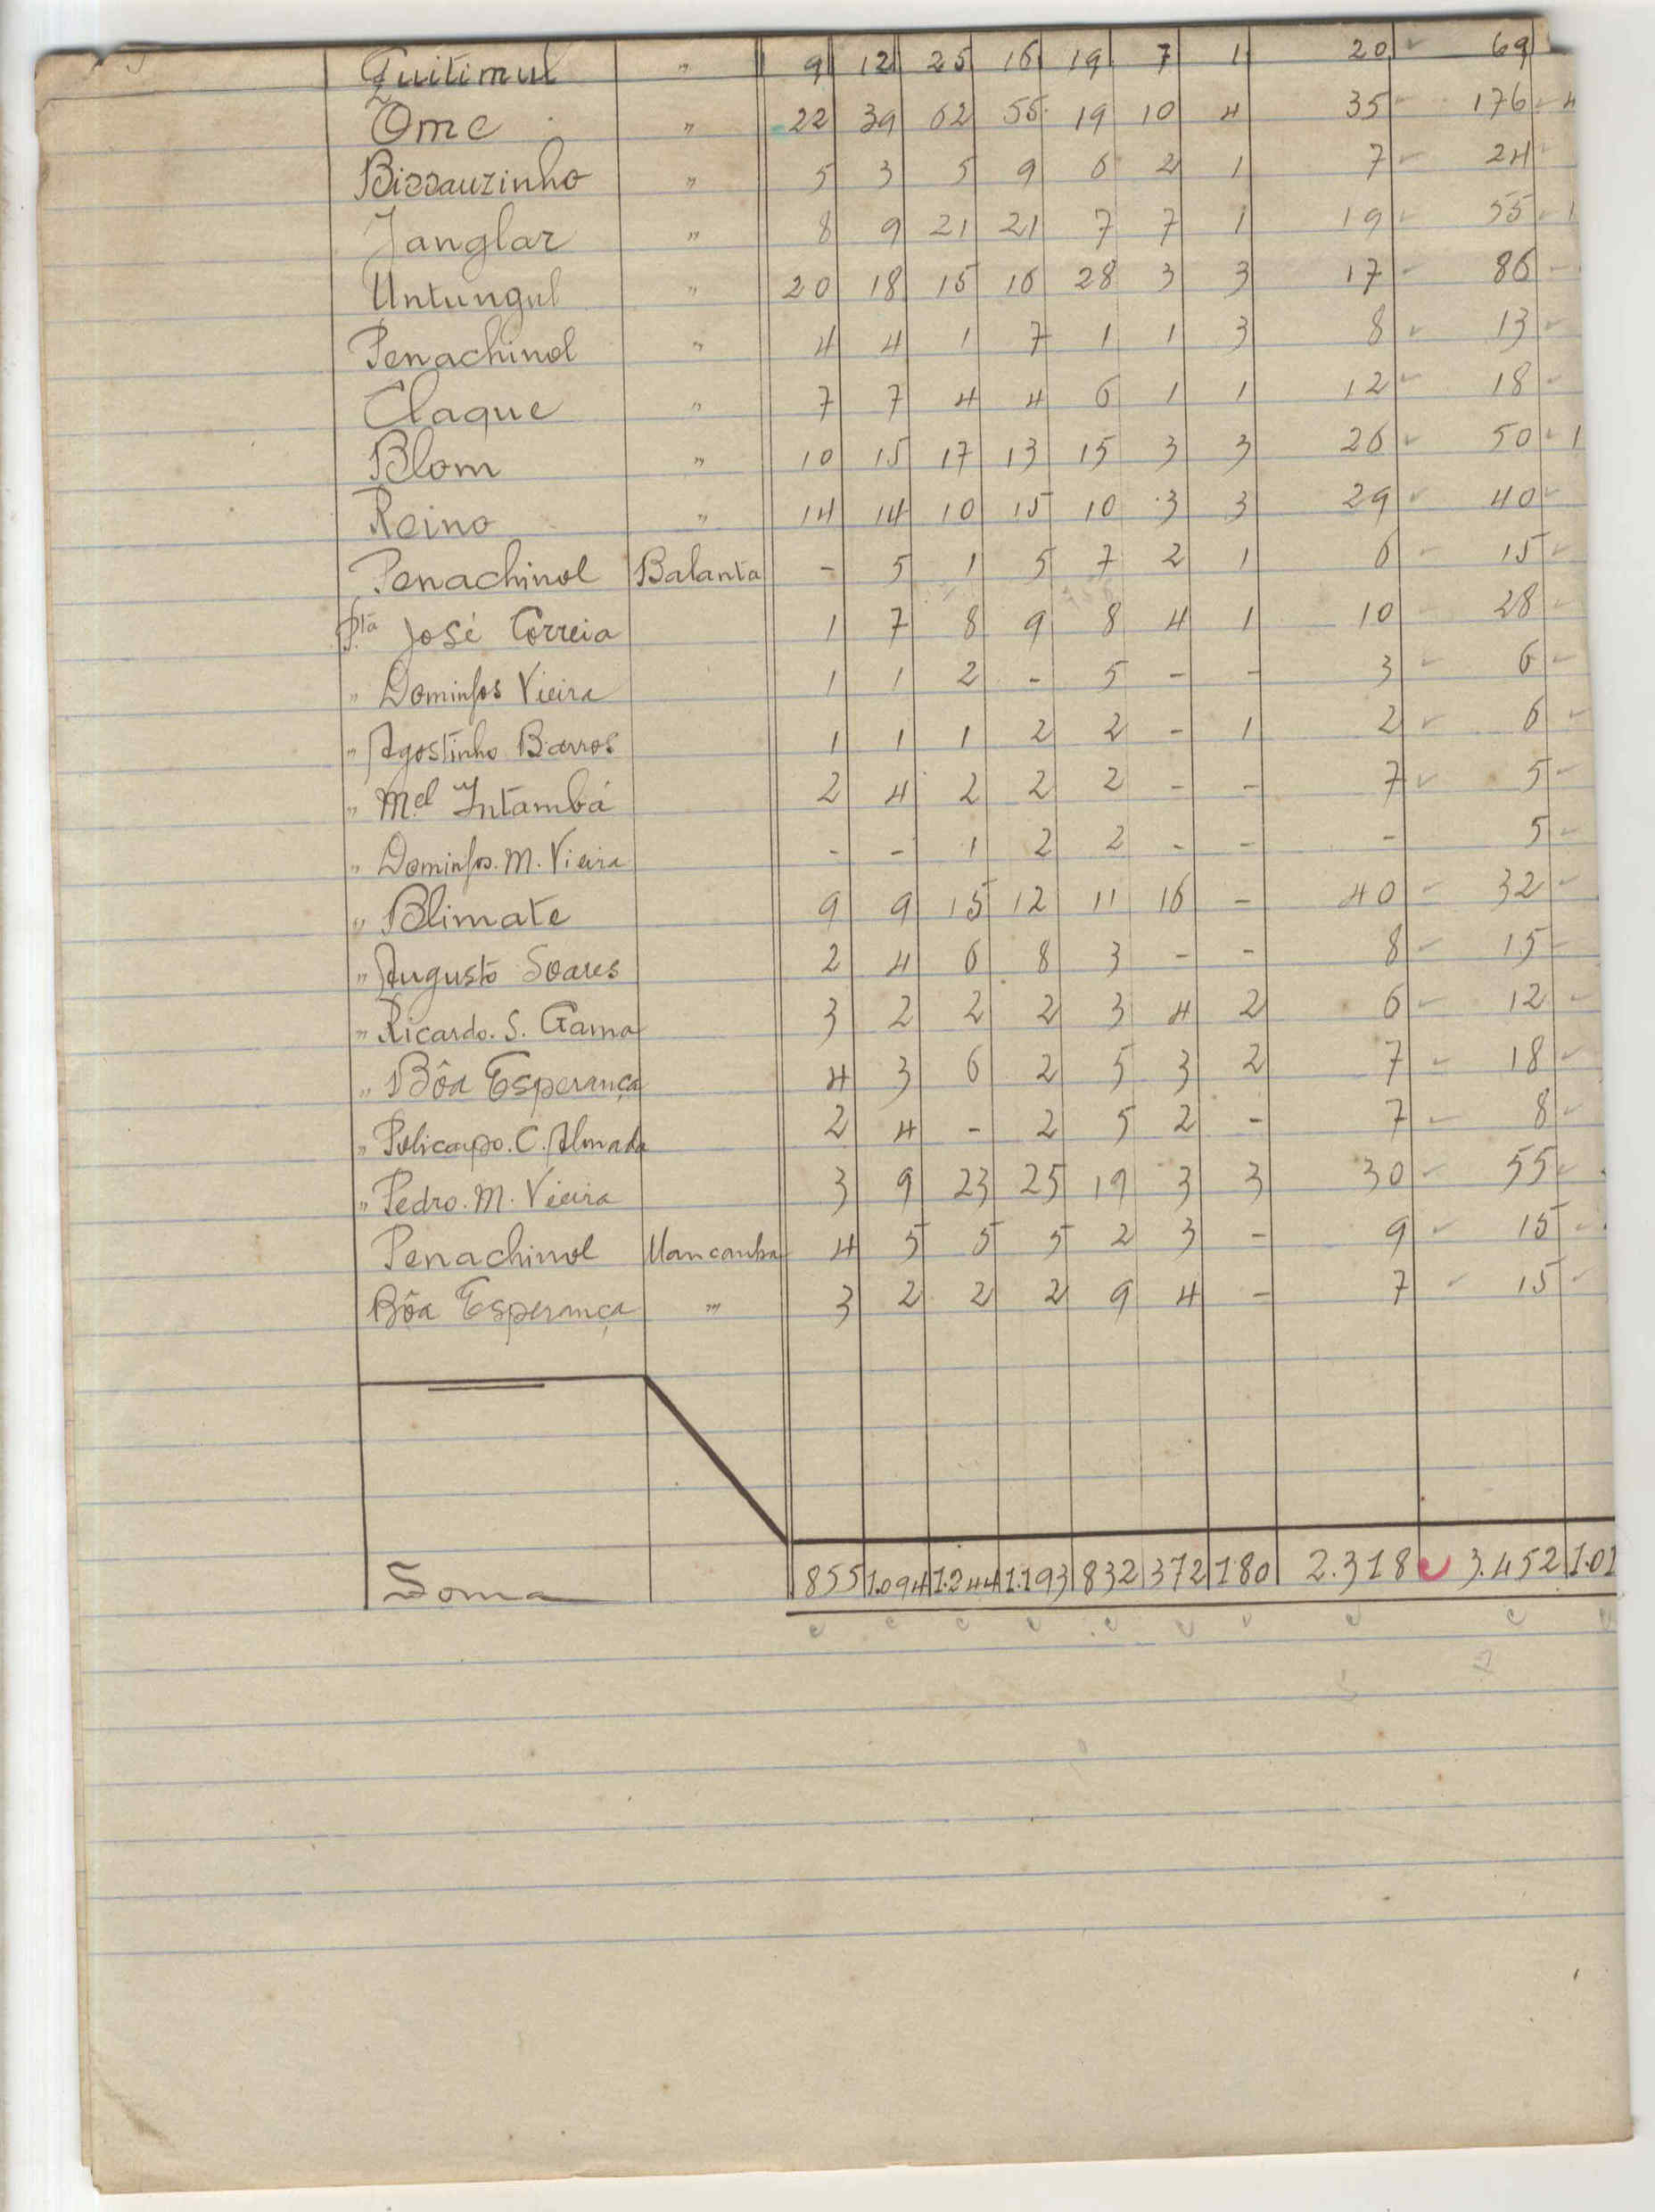 Quitimul " 9 12 25 16 19 7 1 20 69
Ome " 22 39 62 55 19 10 4 35 176 4
Bissauzinho " 5 3 5 9 6 2 1 7 24
Janglar " 8 9 21 21 7 7 1 19 55 1
Untungul " 20 18 15 16 28 3 3 17 86
Penachinol " 4 4 1 7 1 1 3 8 13
Claque " 7 7 4 4 6 1 1 12 18
Blom " 10 15 17 13 15 3 3 26 50 1
Reino " 14 14 10 15 10 3 3 29 40
Penachinol Balanta - 5 1 5 7 2 1 6 15
P.ta José Correia 1 7 8 9 8 4 1 10 28
" Domingos Vieira 1 1 2 - 5 - - 3 6
" Agostinho Barros 1 1 1 2 2 - 1 2 6
" M.el Intambá 2 4 2 2 2 - - 7 5
" Domingos. M. Vieira - - 1 2 2 - - - 5
" Blimate 9 9 15 12 11 16 - 40 32
" Augusto Soares 2 4 6 8 3 - - 8 15
" Ricardo. S. Gama 3 2 2 2 3 4 2 6 12
" Bôa Esperança 4 3 6 2 5 3 2 7 18
" Policarpo. C. Almada 2 4 - 2 5 2 - 7 8
" Pedro. M. Vieira 3 9 23 25 19 3 3 30 55
Penachinol Mancanha 4 5 5 5 2 3 - 9 15
Bôa Esperança " 3 2 2 2 9 4 - 7 15
Soma 855 1.094 1.244 1.193 832 372 180 2.318 3.452 1.01